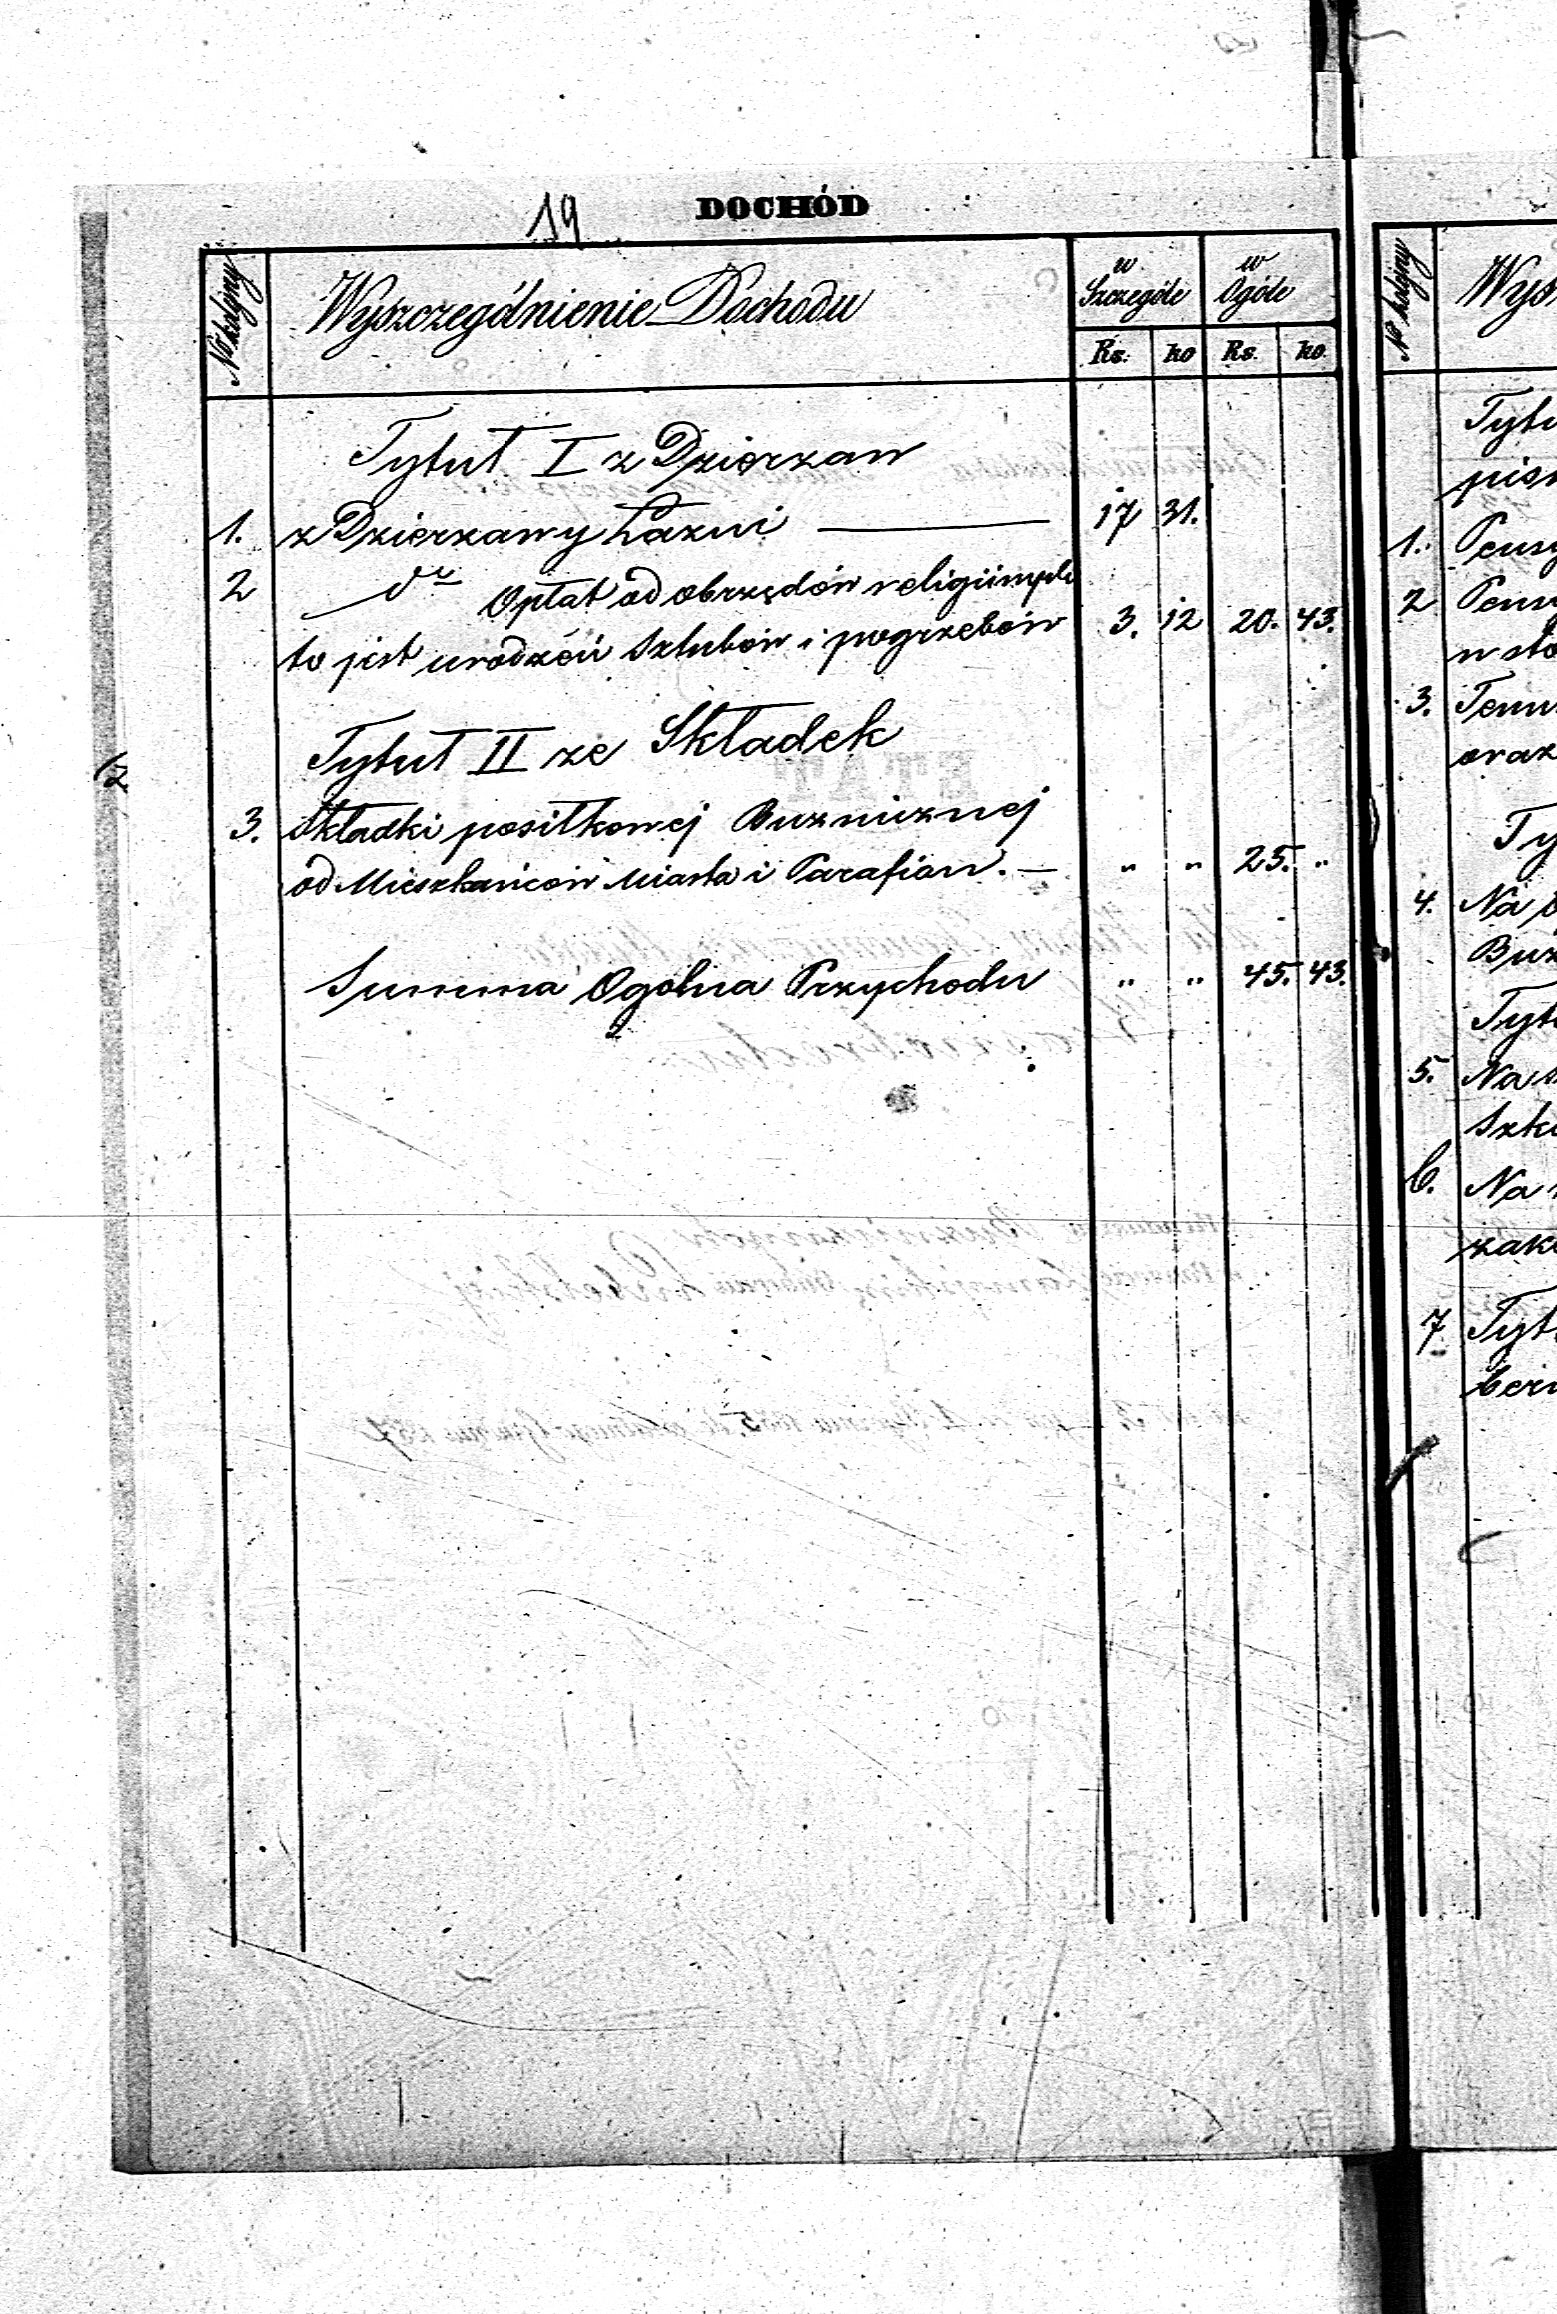 19
DOCHÓD
№ kolejny
Wyszczególnienie Dochodu
w Szczególe
w Ogóle
Rs. ko Rs. ko.
Tytuł I z Dzierzaw
1. z Dzierzawy Łazni 17 31.
2 dto Opłat od obrzędów religiinych
to jest urodzeń Szlubów i pogrzebów 3. 12 20. 43.
Tytuł II ze Składek
3. Składki posiłkowej Buzniznej
od Mieszkańców Miasta i Parafian. — " " 25. "
Summa Ogolna Przychodu " " 45. 43.
№ kolejny
Wys
Tytu
pism
1. Pensy
2 Pensy
w sto
3. Tenu
oraz
Ty
4. Na
Buz
Tytu
5. Na
Szko
6. Na
zak
7 Tyt